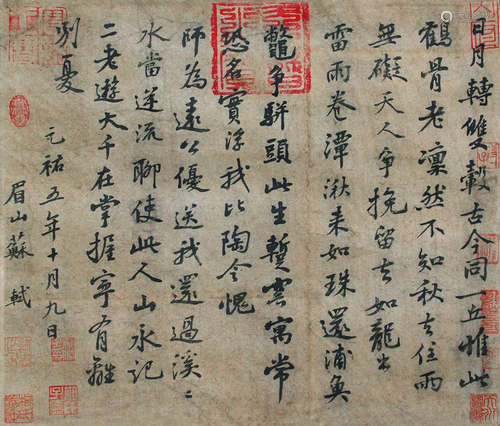 日月轉雙轂古今同一丘惟此
鶴骨老凜然不知秋去住兩
無礙天人爭挽留去如龍出
雷雨卷潭湫来如珠還浦魚
鼈爭駢頭此生暫寄寓常
恐名實浮我比陶令愧
師為遠公優送我還過溪〻
水當逆流聊使此人山永記
二老遊大千在掌握寧有離
別憂
元祐五年十月九日
眉山蘇軾